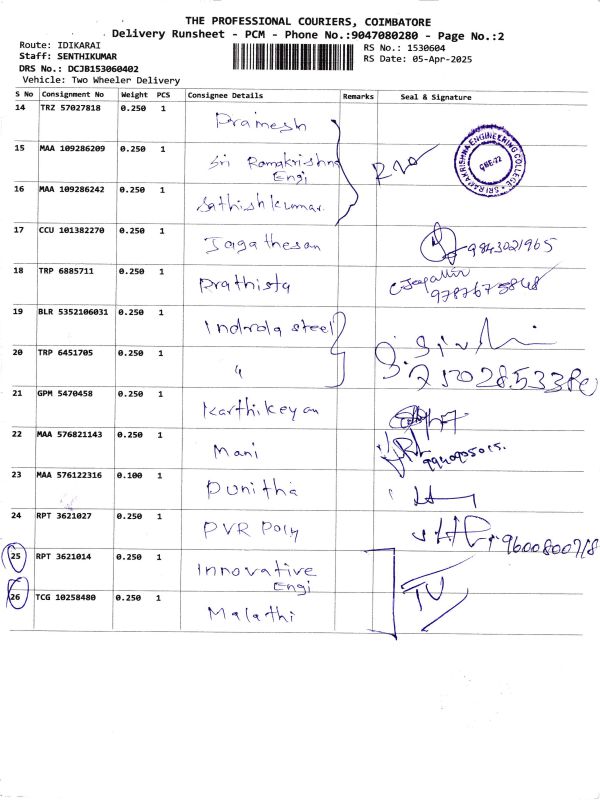 THE PROFESSIONAL COURIERS, COIMBATORE
Delivery Runsheet - PCM - Phone No.:9047080280 - Page No.:2
Route: IDIKARAI
Staff: SENTHIKUMAR
DRS No.: DCJB153060402
Vehicle: Two Wheeler Delivery
RS No.: 1530604
RS Date: 05-Apr-2025
S No Consignment No Weight PCS Consignee Details Remarks Seal & Signature
14 TRZ 57027818 0.250 1 Pramesh
15 MAA 109286209 0.250 1 Sri Ramakrishna
Engi
SRI RAMAKRISHNA ENGINEERING COLLEGE
CBE-22
16 MAA 109286242 0.250 1 Sathishkumar.
17 CCU 101382270 0.250 1 Jagatheson 9843021965
18 TRP 6885711 0.250 1 Prathista
19 BLR 5352106031 0.250 1 Indrola steel
20 TRP 6451705 0.250 1 "
21 GPM 5470458 0.250 1 Karthikeyan
22 MAA 576821143 0.250 1 Mani
9940905015.
23 MAA 576122316 0.100 1 Punitha
24 RPT 3621027 0.250 1 PVR Poly
25 RPT 3621014 0.250 1 Innovative
Engi
26 TCG 10258480 0.250 1 Malathi